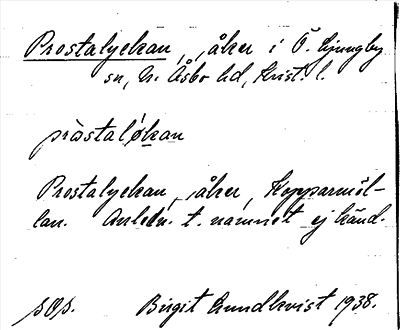 Prostalyckan, åker i Ö. Ljungby
sn, N. Åsbo hd, Krist. l.
pròstalǿkan
Prostalyckan, åker, Kopparmöl-
lan. Anledn. t. namnet ej känd.
Birgit Lundkvist 1938.